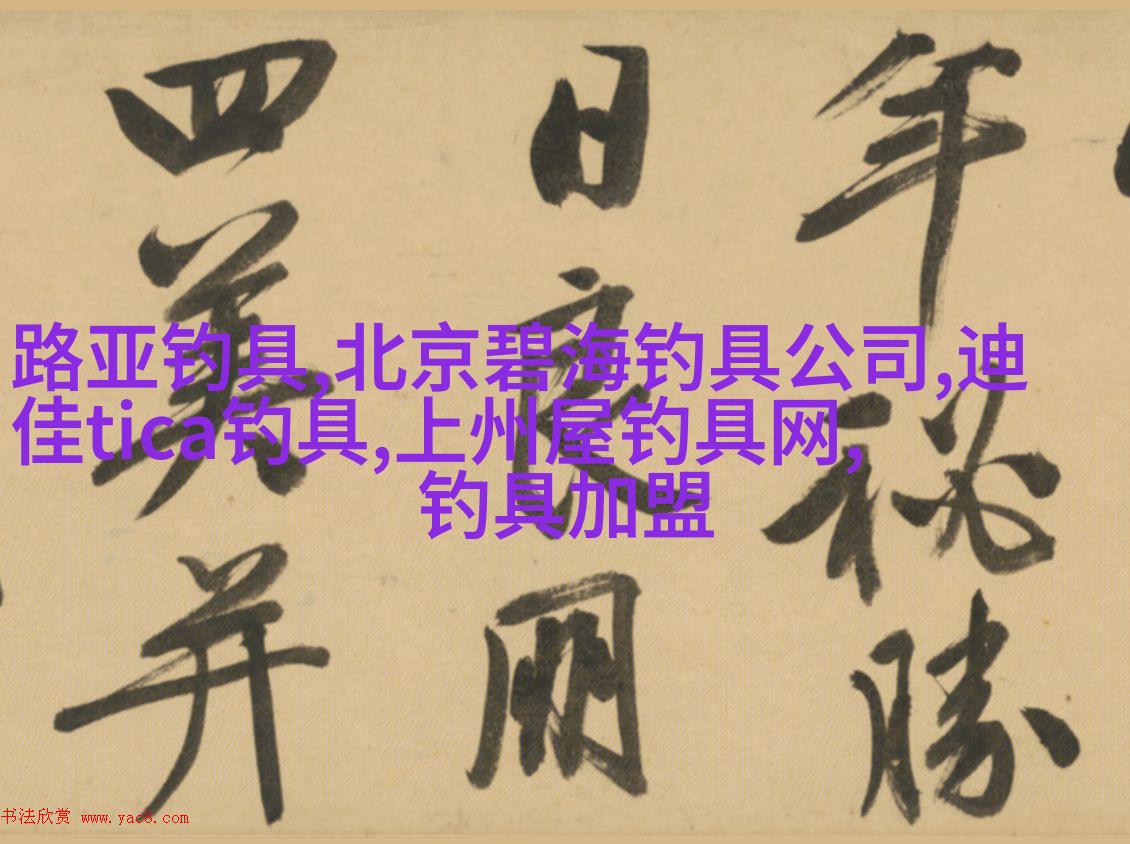 年秘勝
日良朋
四美并
路亚钓具,北京碧海钓具公司,迪
佳tica钓具,上州屋钓具网,
钓具加盟
书法欣赏 www.yac8.com